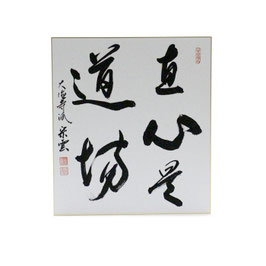 直心是
道場
大徳寺派 宗雲